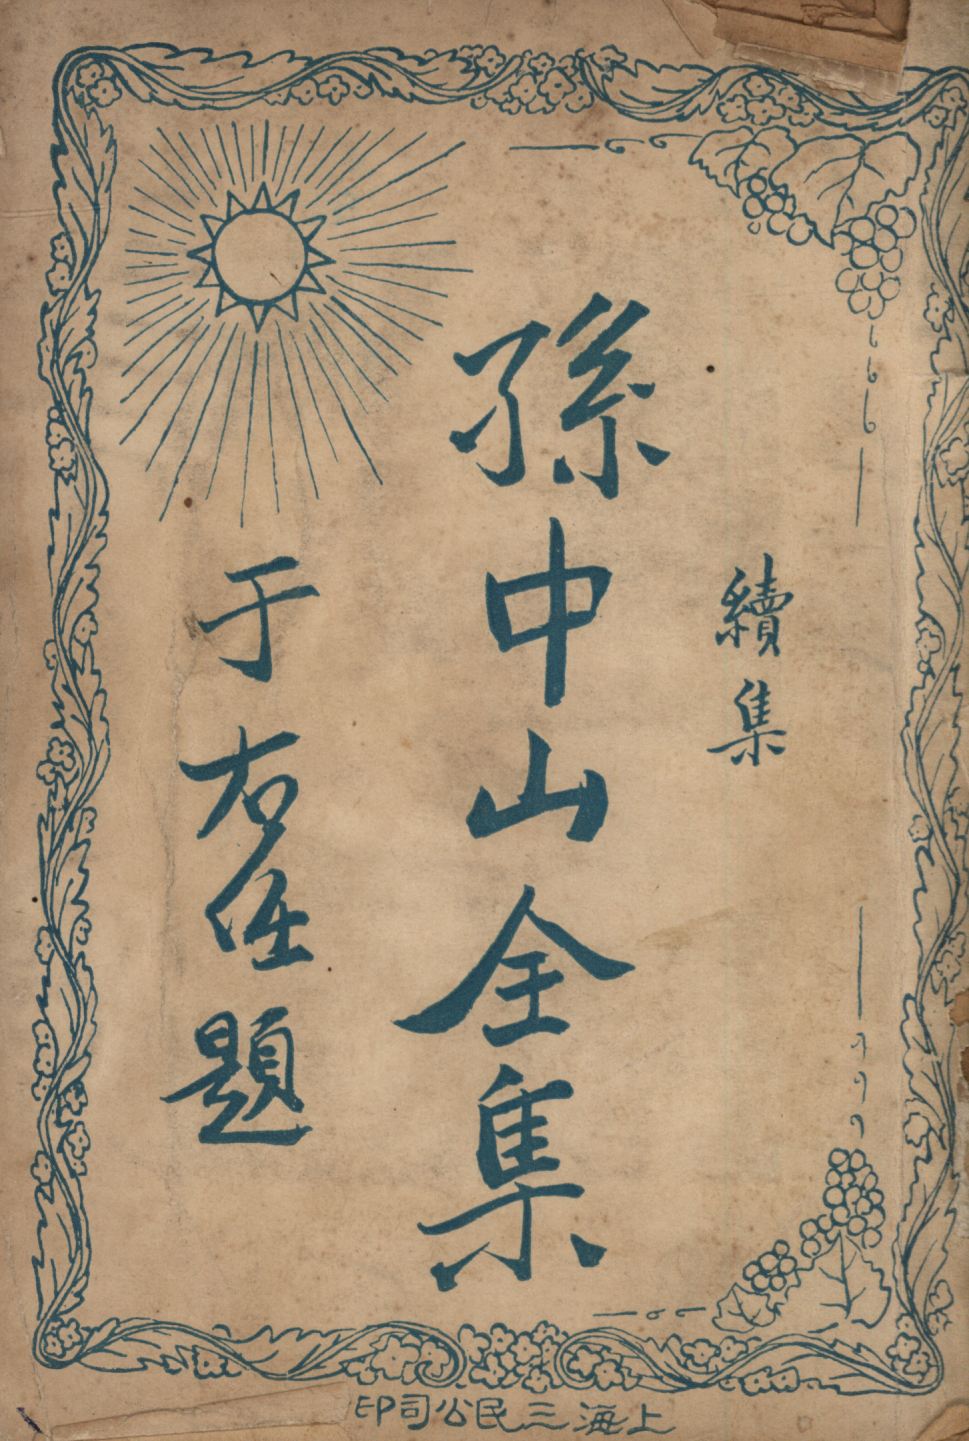 續集
孫中山全集
于右任題
上海三民公司印